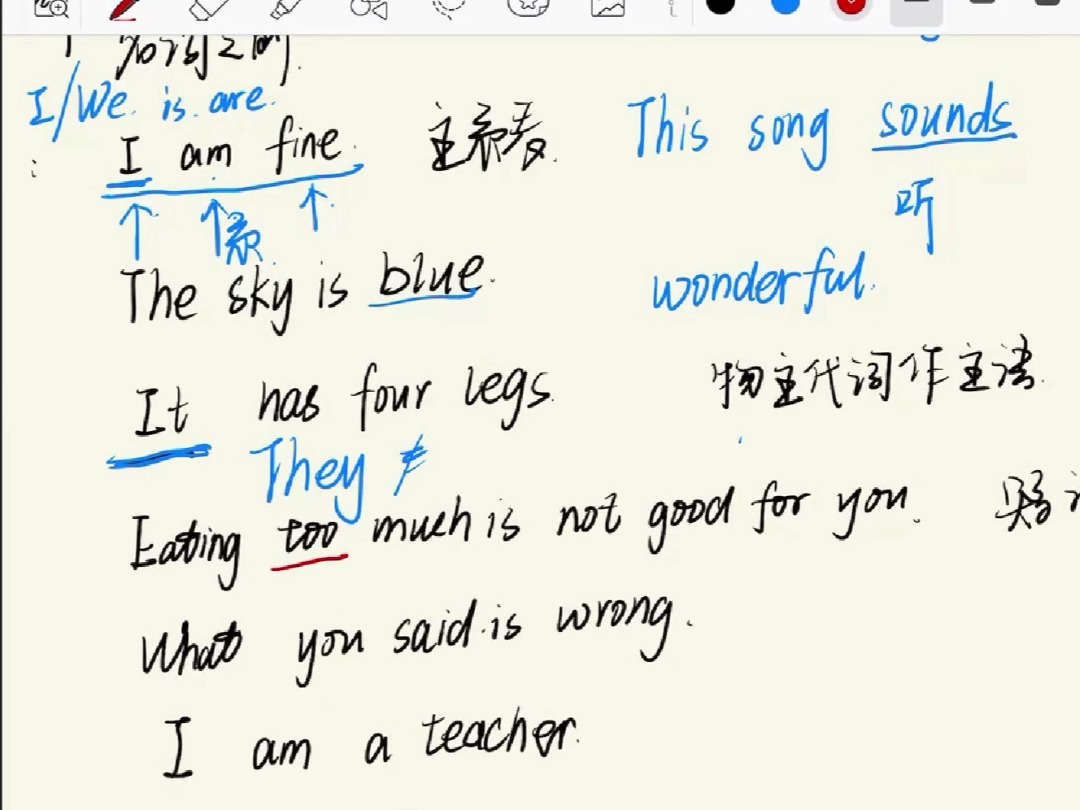 I/We. is. are.
I am fine. 主系表
This song sounds
系
听
The sky is blue.
wonderful.
It has four legs.
物主代词作主语
They
Eating too much is not good for you.
What you said is wrong.
I am a teacher.